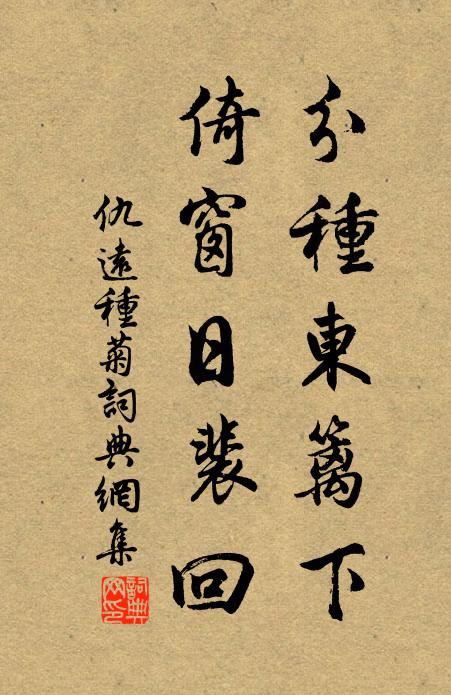 分種東籬下
倚窗日裴回
仇遠種菊詞典網集
詞典網印